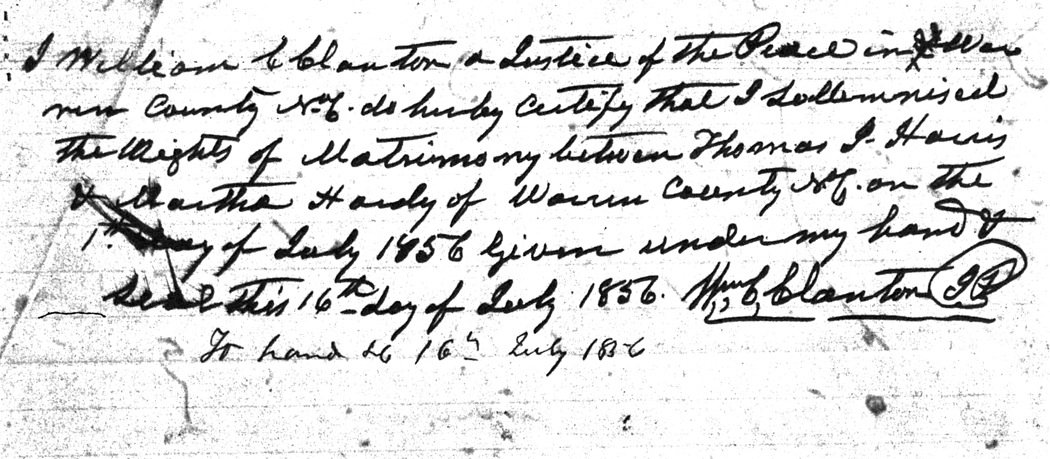 I William C Clanton a Justice of the Peace in & War
ren County N.C. do herby certify that I Sollemnised
the Rights of Matrimony between Thomas J. Harris
& Martha Hardy of Warren County N.C. on the
1th day of July 1856 Given under my hand &
Seal this 16th day of July 1856. Wm C Clanton JP
To hand 16th July 1856